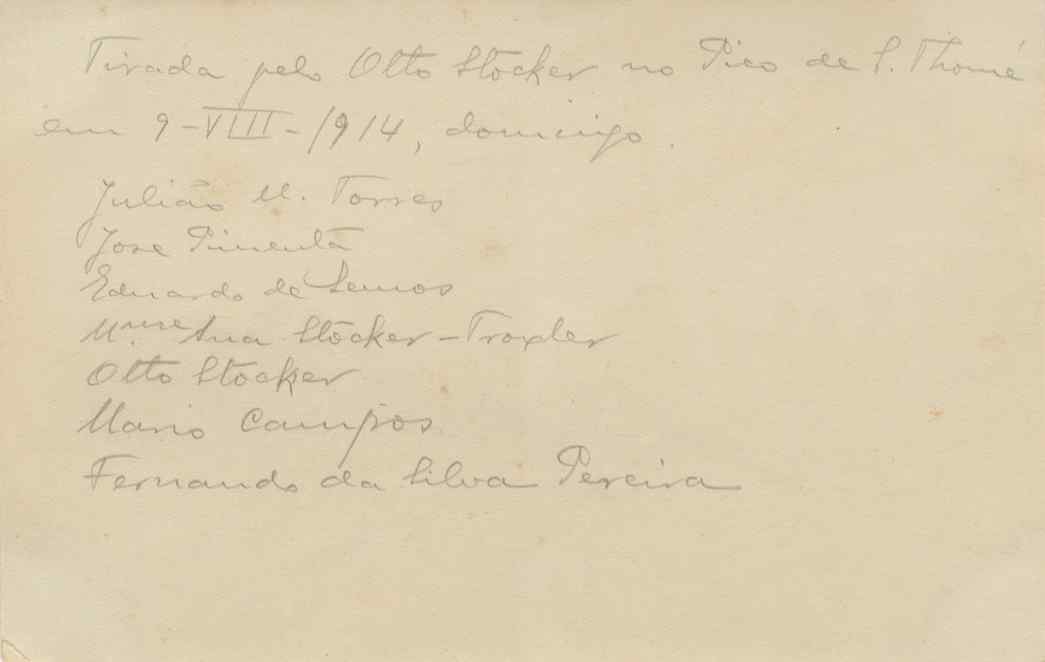 Tirada pelo Otto Stocker no Pico de S. Thomé
em 9-VIII-1914, domingo.
Julião M. Torres
Jose Pimenta
Eduardo de Lemos
M.me Ana Stocker-Troxler
Otto Stocker
Mario Campos
Fernando da Silva Pereira